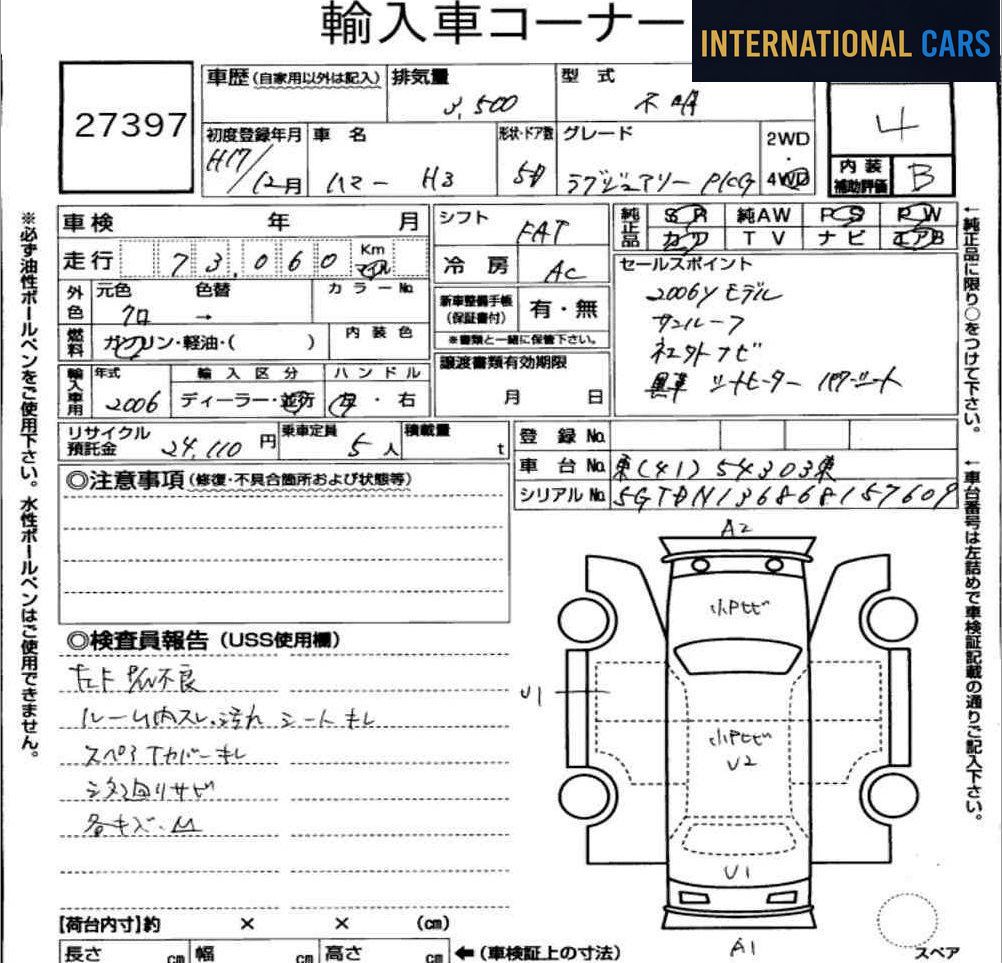 輸入車コーナー
INTERNATIONAL CARS
27397
車歴(自家用以外は記入) 排気量 3,500 型式 不明
4
初度登録年月 H17/12月 車名 ハマー H3 形状・ドア数 5D グレード ラグジュアリー PKG 2WD・4WD
内装補助評価 B
車検 年 月
走行 73,060 Km マイル
シフト FAT
冷房 AC
純正品 SR 純AW PS PW
カワ TV ナビ エアB
外色 元色 クロ 色替 → カラーNo
燃料 ガソリン・軽油・( ) 内装色
新車整備手帳(保証書付) 有・無
※書類と一緒に保管下さい。
セールスポイント
2006yモデル
サンルーフ
社外ナビ
黒革 シートヒーター パワーシート
輸入車用 年式 2006 輸入区分 ディーラー・並行 ハンドル 左・右
譲渡書類有効期限
月 日
リサイクル預託金 24,110円 乗車定員 5人 積載量 t
登録No.
車台No. 東(41)54303東
シリアルNo. 5GTDN136868157609
◎注意事項(修復・不具合箇所および状態等)
◎検査員報告(USS使用欄)
ルーム内スレ、汚れ シートキレ
スペアTカバーキレ
シタ廻りサビ
各キズ・凹
A2
小Pヒビ
U1
小Pヒビ
U2
U1
A1
スペア
【荷台内寸】約 × × (cm)
長さ cm 幅 cm 高さ cm ←(車検証上の寸法)
※必ず油性ボールペンをご使用下さい。水性ボールペンはご使用できません。
←純正品に限り○をつけて下さい。
←車台番号は左詰めで車検証記載の通りご記入下さい。